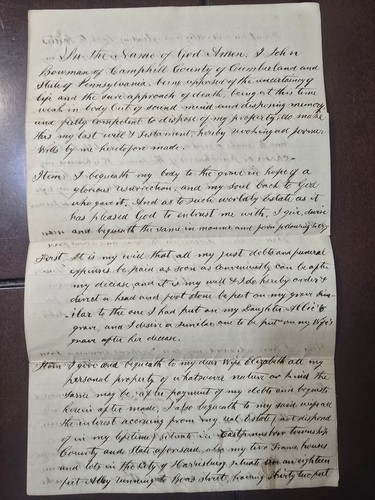 In the Name of God Amen. I John
Bowman of Camphill County of Cumberland and
State of Pennsylvania. being apprised of the uncertainty of
life and the sure approach of death, being at this time
weak in body but of sound mind and disposing memory
and fully competent to dispose of my property, do make
this my last will & Testament, hereby revoking all former
Wills by me heretofore made.
Item. I bequeath my body to the grave in hope of a
glorious resurrection, and my soul back to God
who gave it. And as to such worldly Estate as it
has pleased God to entrust me with, I give, devise
and bequeath the same in manner and form following to wit
First. It is my will that all my just debts and funeral
expenses be paid as soon as conveniently can be after
my decease, and it is my will & I do hereby order &
direct a head and foot stone be put on my grave sim-
ilar to the one I had put on my Daughter Allie's
grave, and I desire a similar one to be put on my Wife's
grave after her decease.
Item I give and bequeath to my dear Wife Elizabeth all my
personal property of whatsoever nature or kind the
same may be, after payment of my debts and bequests
herein after made, I also bequeath to my said wife all
the interest accruing from my real Estate, (not disposed
of in my lifetime) situate in Eastpennsboro township
County and State aforesaid, also my two Frame houses
and lots in the City of Harrisburg, situate on an eighteen
feet Alley running to Broad street, having thirty two feet